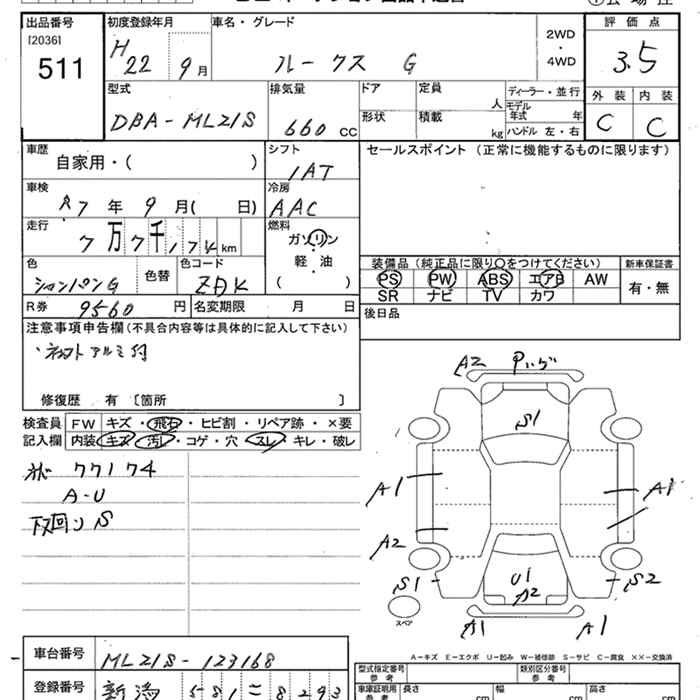 出品番号 初度登録年月 車名・グレード 2WD・4WD 評価点
[2036] 511
H22 9月 ルークス G 3.5
型式 DBA-ML21S
排気量 660 CC
ドア 定員 人 ディーラー・並行
形状 積載 kg モデル年式 年
ハンドル 左・右
外装 内装
C C
車歴 自家用・( )
シフト IAT
セールスポイント (正常に機能するものに限ります)
車検 R7年 9月( 日)
冷房 AAC
走行 7万7千,174km
燃料 ガソリン・軽・油 ( )
色 シャンパンG 色替 色コード ZAK
装備品 (純正品に限り○をつけてください) 新車保証書
PS PW ABS エアB AW 有・無
SR ナビ TV カワ
R券 9560円 名変期限 月 日
後日品
注意事項申告欄 (不具合内容等は具体的に記入して下さい)
修復歴 有 [箇所 ]
検査員記入欄
FW キズ・飛石・ヒビ割・リペア跡・×要
内装 キズ・汚レ・コゲ・穴・スレ・キレ・破レ
77174
A-U
下回り S
A2
S1
A1 A1
A2
S1 S2
U1
A2
A1 A1
スペア
A-キズ E-エクボ U-凹み W-補修跡 S-サビ C-腐食 ××-交換済
車台番号 ML21S-123168
型式指定番号 参考 類別区分番号 参考
登録番号 新潟 581 = 8293
車庫証明用 参考 長さ cm 幅 cm 高さ cm